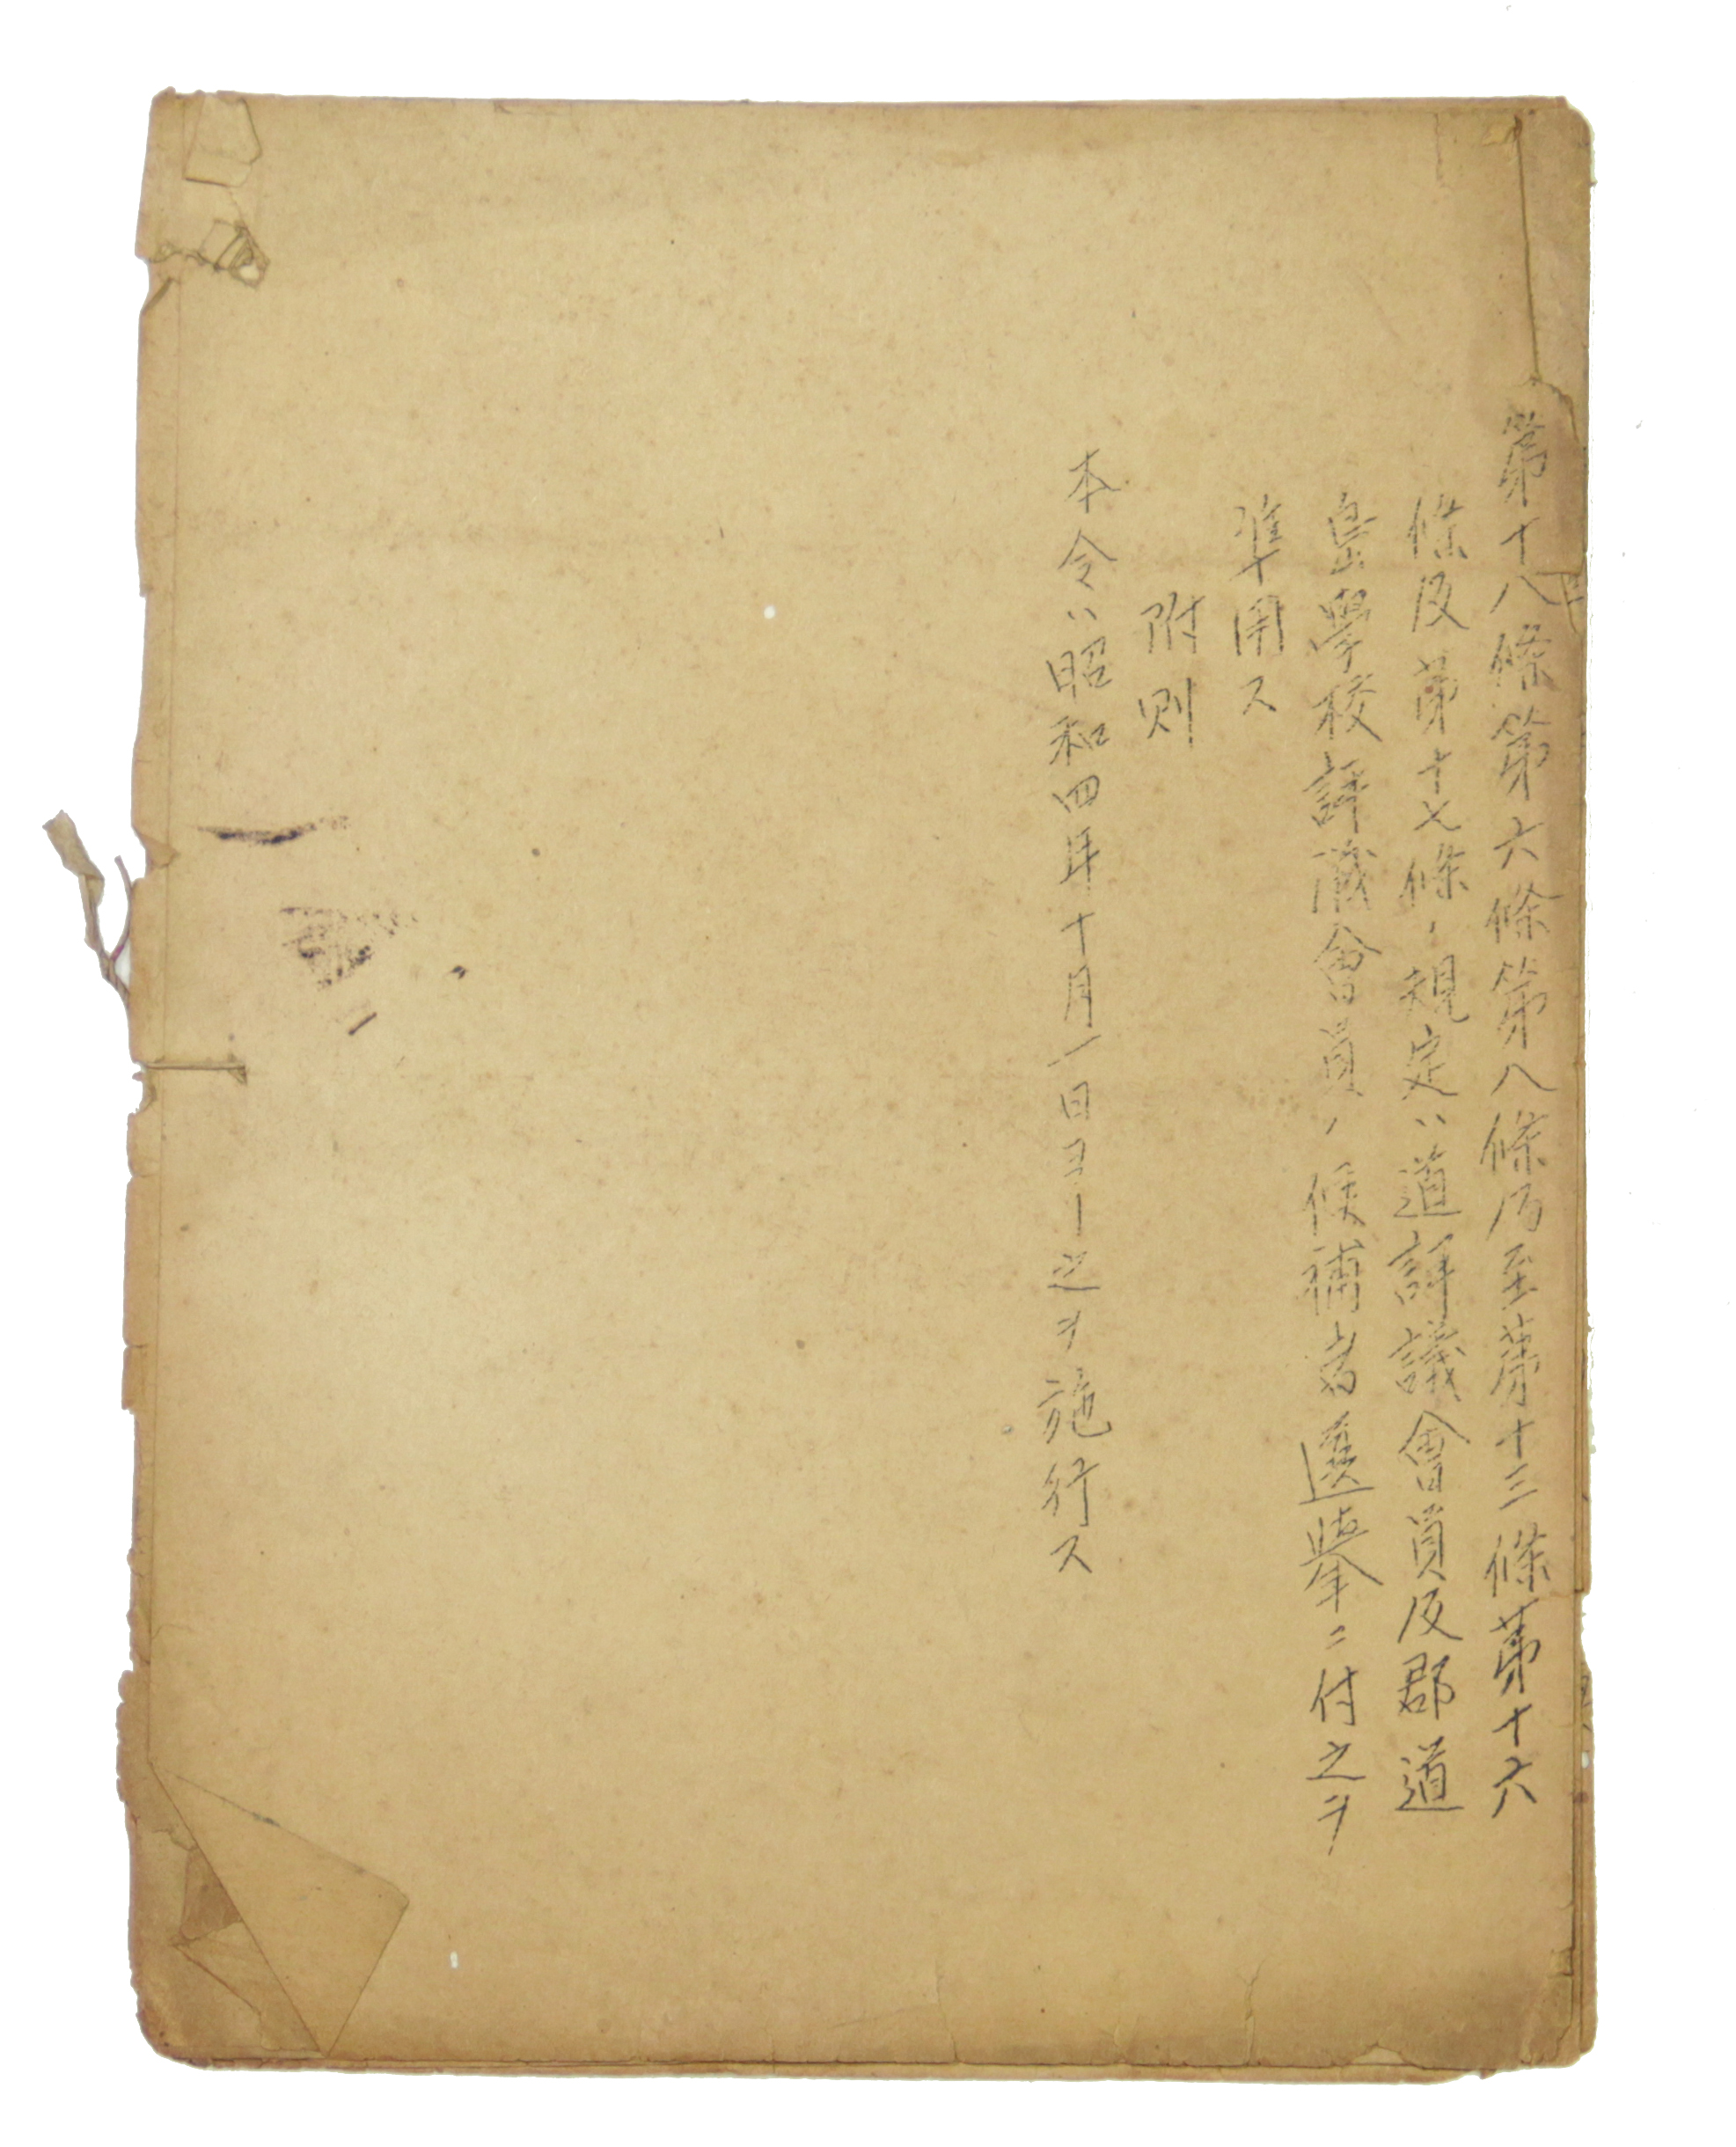 第十八條第六條第八條乃至第十三條第十六
條及第十七條ノ規定ハ道評議會員及郡道
島學校評議會員ノ候補者選擧ニ付之ヲ
準用ス
附則
本令ハ昭和四年十月一日ヨリ之ヲ施行ス